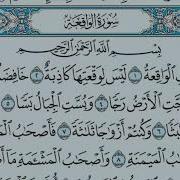 سُورَةُ الوَاقِعَةِ
بِسْمِ اللَّهِ الرَّحْمَٰنِ الرَّحِيمِ
الْوَاقِعَةُ ١ لَيْسَ لِوَقْعَتِهَا كَاذِبَةٌ ٢ خَافِضَةٌ
رُجَّتِ الْأَرْضُ رَجًّا ٤ وَبُسَّتِ الْجِبَالُ بَسًّا ٥
٦ وَكُنتُمْ أَزْوَاجًا ثَلَاثَةً ٧ فَأَصْحَابُ الْمَيْمَنَةِ
الْمَيْمَنَةِ ٨ وَأَصْحَابُ الْمَشْأَمَةِ مَا